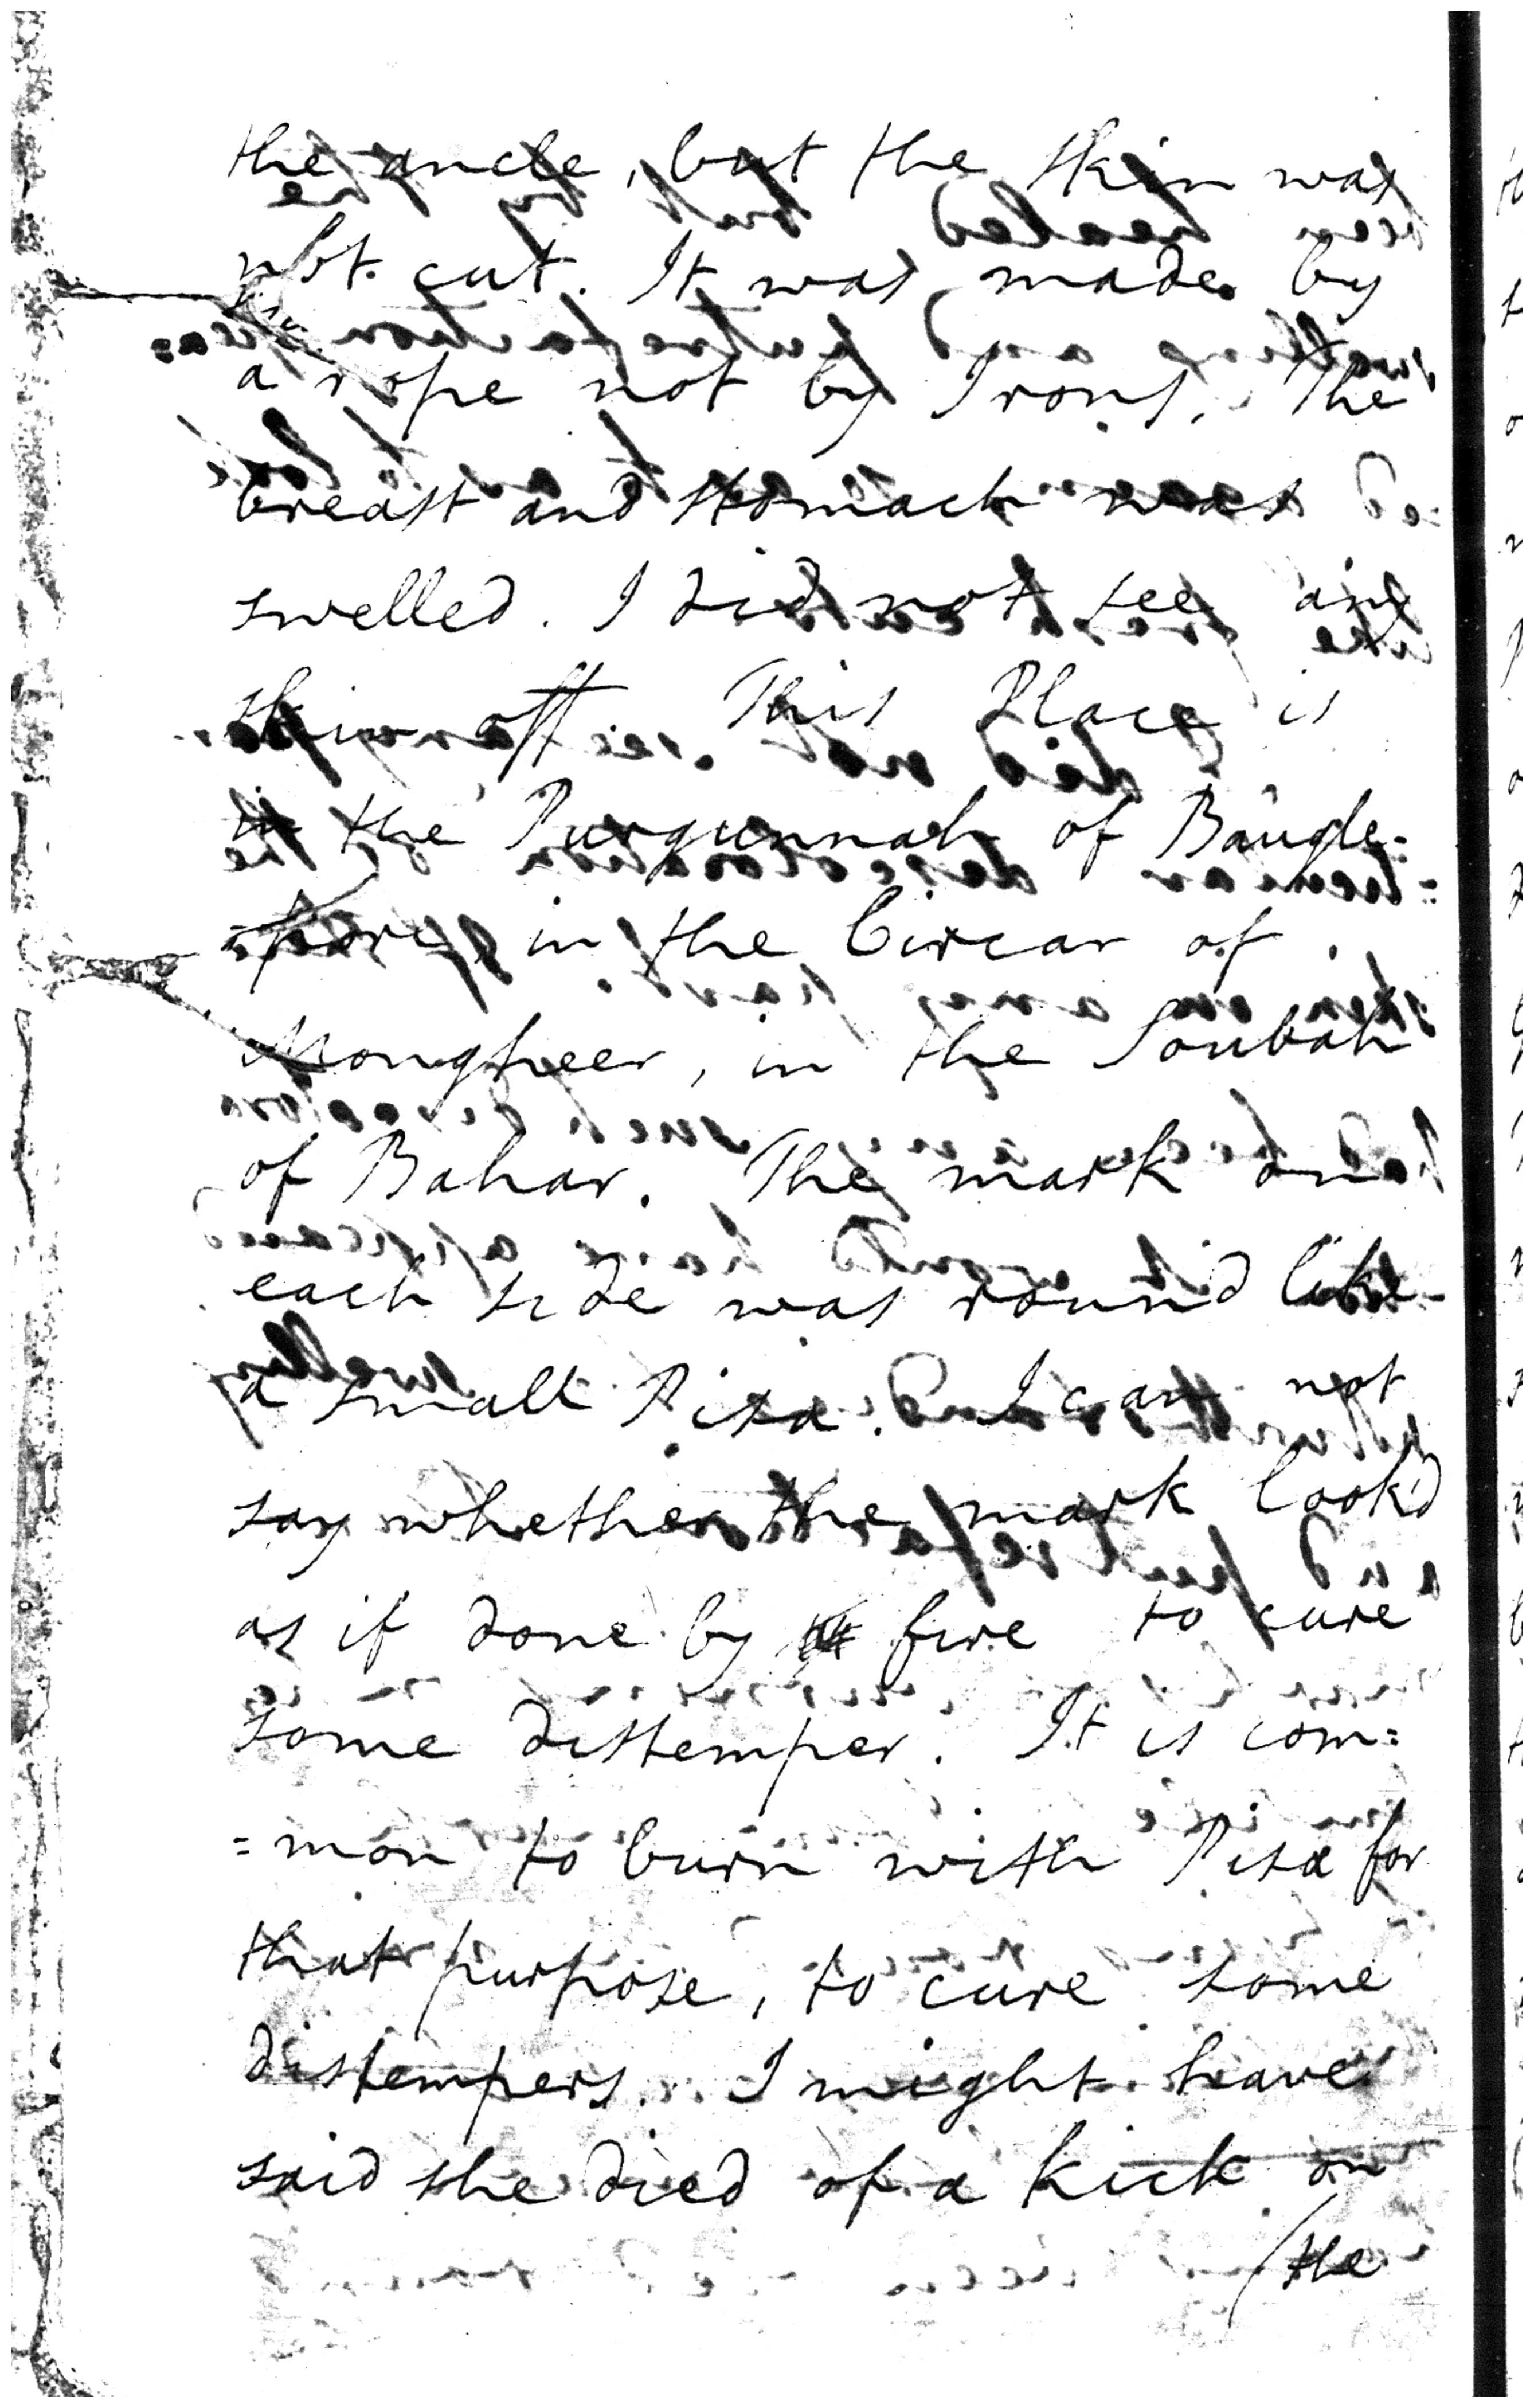 the ancle, but the skin was
not cut. It was made by
a rope not by Irons. The
breast and stomach was
swelled. I did not see any
skin off. This Place is
in the Purgunnah of Baugle=
=pore, in the Circar of
Mongheer, in the Soubah
of Bahar. The mark on
each side was round like
a small Pisa. I can not
say whether the mark look'd
as if done by fire to cure
some distemper. It is com=
=mon to burn with Pisa for
that purpose, to cure some
distempers. I might have
said she died of a kick on
/the